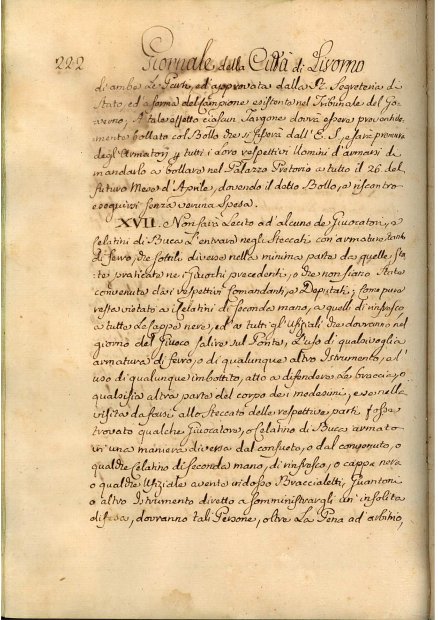 222 Giornale della Città di Livorno
di ambe Le Parti, ed approvata dalla R. Segreteria di
Stato, ed a forma del Campione esistente nel Tribunale del Go-
verno; A tale effetto ciascun Targone dovrà essere preventiva-
mente bollato col Bollo che si userà dall' E. S., e sarà premura
degli Armatori p tutti i loro respettivi Uomini d'armarsi di
mandarlo a bollare nel Palazzo Pretorio a tutto il 26 del
futuro Mese d'Aprile, dovendo il detto Bollo, e riscontro
eseguirsi senza veruna Spesa.
XVII. Non sarà Lecito ad alcuno de Giuocatori, e
Celatini di Buca L'entrare negli Steccati con armature tanto
di ferro, che sottili diverse nella minima parte da quelle, sta-
te praticate ne i Giuochi precedenti, o che non siano State
convenute da i respettivi Comandanti, e Deputati; Come pure
resta vietato a i Celatini di Seconda mano, a quelli di rinfresco
a tutte Le Cappe nere, ed a tutti gli Ufiziali che dovranno nel
giorno del Giuoco Salire sul Ponte, L'uso di qualsivoglia
armatura di ferro, o di qualunque altro Istrumento, ed l'
uso di qualunque imbottito, atto a difendere Le braccia, o
qualsisia altra parte del corpo de i medesimi, e se nella
visita da farsi allo Steccato delle respettive parti fosse
trovato qualche Giuocatore, o Celatino di Buca armato
in una maniera diversa dal consueto, o dal convenuto, o
qualche Celatino di Seconda mano, di rinfresco, o cappa nera
o qualche Ufiziale avente indosso Braccialetti, Guantoni
o altro Istrumento diretto a somministrargli un' insolita
difesa, dovranno tali Persone, oltre La Pena ad arbitrio,